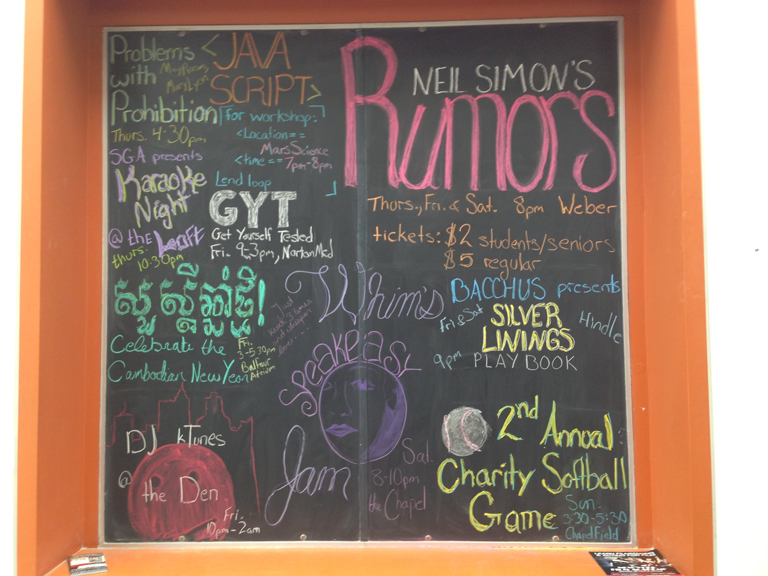 Problems
with
Prohibition
Thurs. 4:30pm
< JAVA
SCRIPT >
[for workshop:
<Location==
Mars Science
<time == 7pm-8pm
End loop ]
SGA presents
Karaoke
Night
@ the Loft
thurs.
10:30pm
GYT
Get Yourself Tested
Fri. 9-3pm, Norton Med
NEIL SIMON'S
Rumors
Thurs., Fri. & Sat. 8pm Weber
tickets: $2 students/seniors
$5 regular
សួស្តីឆ្នាំថ្មី!
Celebrate the
Cambodian New Year
Fri.
3-5:30pm
Balfour
Atrium
Whim's
Speakeasy
Jam
Sat.
8-10pm
the Chapel
BACCHUS presents
Fri & Sat
SILVER
LININGS
PLAYBOOK
Hindle
9pm
DJ kTunes
@
the Den
Fri.
10pm-2am
2nd Annual
Charity Softball
Game
Sun.
3:30-5:30
Chapel Field